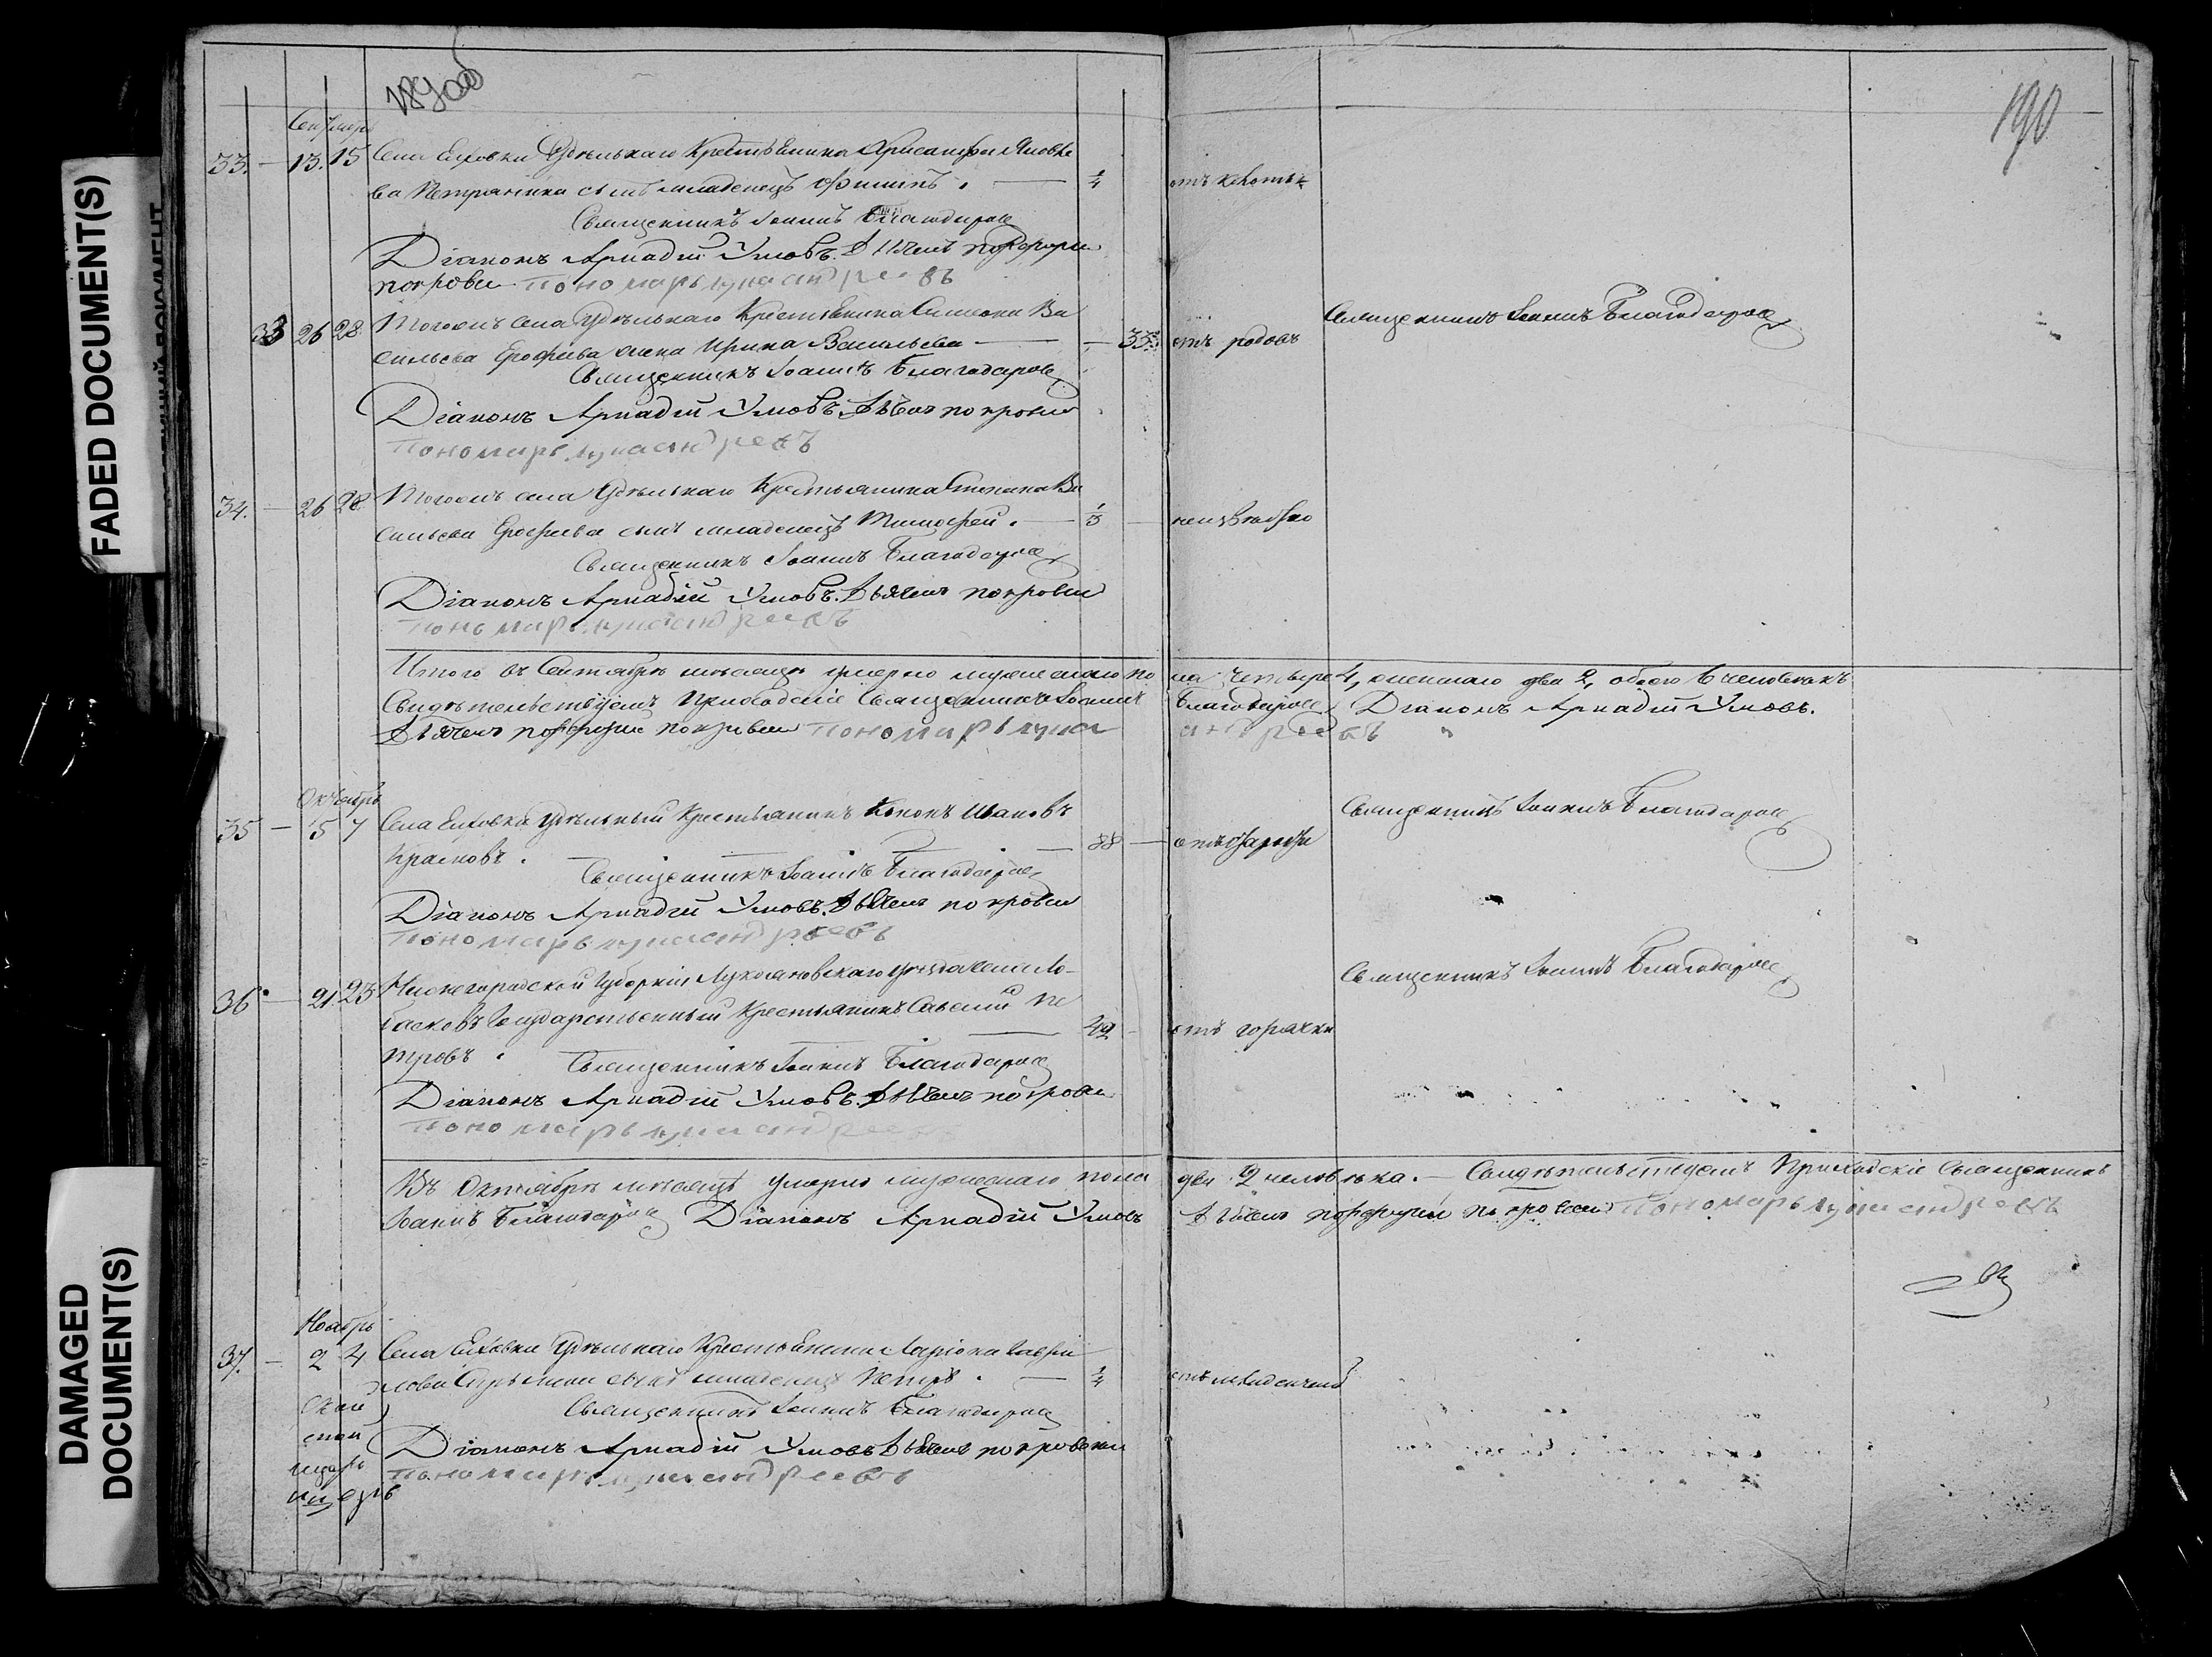 189об
190
FADED DOCUMENT(S)
DAMAGED DOCUMENT(S)
Сентябрь
33. 13. 15 Села Елховки Удѣльнаго Крестьянина Хрисанфа Яковле
ва Петрянина сынъ младенецъ Филипъ. 1/4 отъ
Священникъ Іоаннъ Благодаров
Діаконъ Аркадій Умовъ. Дьячекъ порфири
покровски Пономарь лука андреевъ
33 26 28 Тогожъ села Удѣльнаго Крестьянина Ва
сильева Ерофѣева жена Ирина Васильева 33 отъ родовъ
Священникъ Іоаннъ Благодаров
Священникъ Іоаннъ Благодаров
Діаконъ Аркадій Умовъ. Дьячекъ покровски
Пономарь лука андреевъ
34. 26 28 Тогожъ села Удѣльнаго Крестьянина Степана Ва
сильева Ерофѣева сынъ младенецъ Тимофей. неизвѣстно
Священникъ Іоаннъ Благодаров
Діаконъ Аркадій Умовъ. Дьячекъ покровски
Пономарь лука андреевъ
Итого въ Сентябрѣ мѣсяцѣ умерло мужескаго по ла четыре 4, женскаго два 2, обоего 6 человѣкъ
Свидѣтельствуемъ Приходскіе Священникъ Іоаннъ Благодаров Діаконъ Аркадій Умовъ.
Дьячекъ порфирий покровски пономарь лука андреевъ
Октябрь
35 5 7 Села Елховки Удѣльный Крестьянинъ Кононъ Ивановъ
Красновъ. 88
Священникъ Іоаннъ Благодаров
Священникъ Іоаннъ Благодаров
Діаконъ Аркадій Умовъ. Дьячекъ покровски
Пономарь лука андреевъ
36. 21. 23 Нижегородской Губерніи Лукояновскаго уѣзда села Ло-
басковъ Государственный Крестьянинъ Савелий Пе
тровъ. 49 отъ горячки
Священникъ Іоаннъ Благодаров
Священникъ Іоаннъ Благодаров
Діаконъ Аркадій Умовъ. Дьячекъ покровски
Пономарь лука андреевъ
Въ Октябрѣ мѣсяцѣ умерло мужескаго пола два 2 человѣка. — Свидѣтельствуемъ Приходскіе Священникъ
Іоаннъ Благодаров Діаконъ Аркадій Умовъ Дьячекъ порфирий покровски Пономарь лука андреевъ
Ноябрь
37. 2 4 Села Елховки Удѣльнаго Крестьянина Ларіона Гаври
лова сынъ младенецъ Петръ. 1/4 отъ младенческой
Священникъ Іоаннъ Благодаров
Діаконъ Аркадій Умовъ Дьячекъ покровски
пономарь лука андреевъ